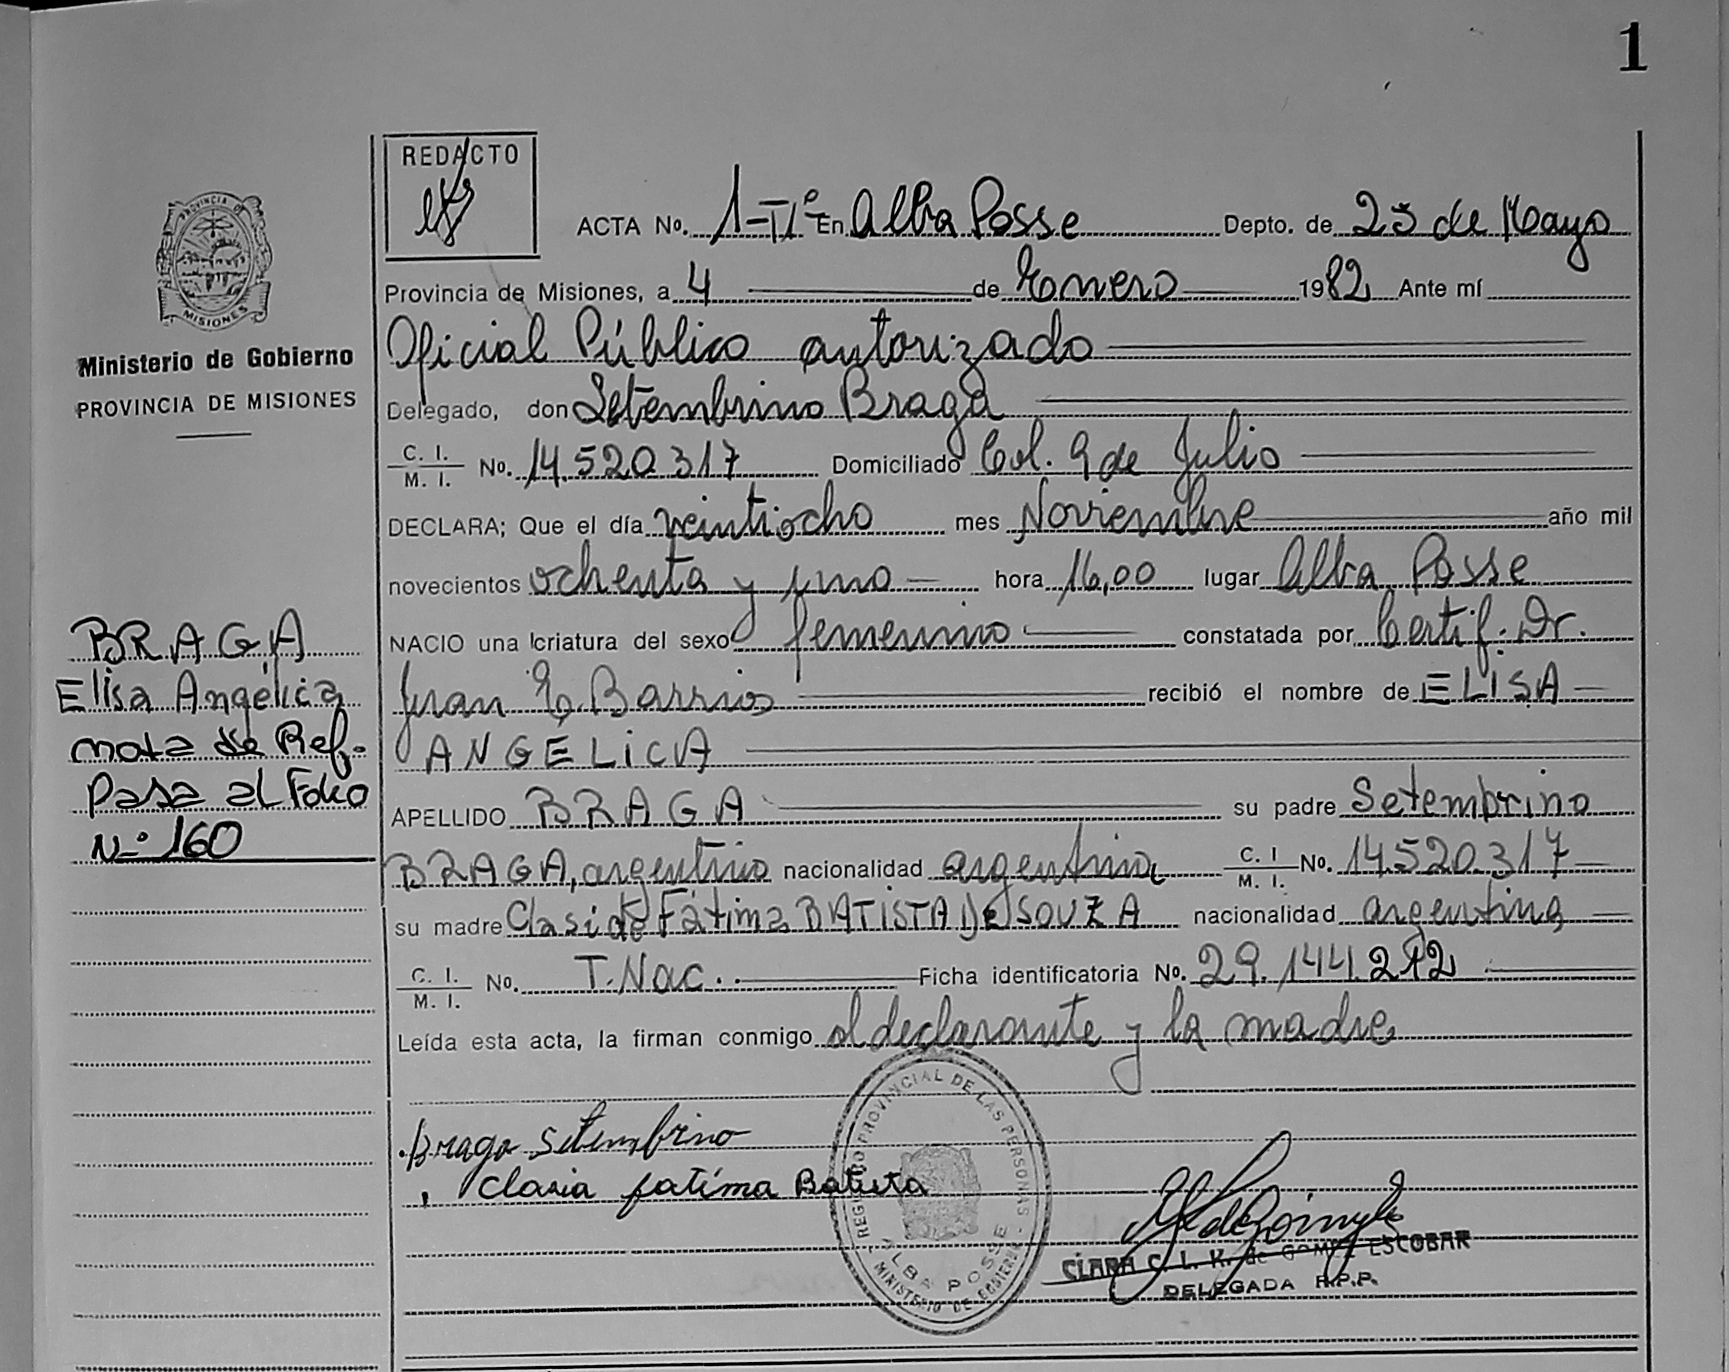 1
REDACTO
ACTA No. 1-Tº En Alba Posse Depto. de 25 de Mayo
Provincia de Misiones, a 4 de Enero 1982 Ante mí
Oficial Público autorizado
Delegado, don Setembrino Braga
C. I. / M. I. No. 14.520.317 Domiciliado Col. 9 de Julio
DECLARA; Que el día veintiocho mes Noviembre año mil
novecientos ochenta y uno hora 16,00 lugar Alba Posse
NACIO una criatura del sexo femenino constatada por Certif. Dr.
Juan E. Barrios recibió el nombre de ELISA
ANGÉLICA
APELLIDO BRAGA su padre Setembrino
BRAGA, argentino nacionalidad argentina C. I / M. I. No. 14.520.317
su madre Clasi de Fátima BATISTA De SOUZA nacionalidad argentina
C. I. / M. I. No. T. Nac. Ficha identificatoria No. 29.144.212
Leída esta acta, la firman conmigo el declarante y la madre
Braga Setembrino
fatima Batista
PROVINCIA DE
MISIONES
Ministerio de Gobierno
PROVINCIA DE MISIONES
BRAGA
Elisa Angélica
nota de Ref.
Pasa al Folio
Nº 160
REGISTRO PROVINCIAL DE LAS PERSONAS
ALBA POSSE
MINISTERIO DE GOBIERNO
CLARA C. L. K. de GOMEZ ESCOBAR
DELEGADA R.P.P.